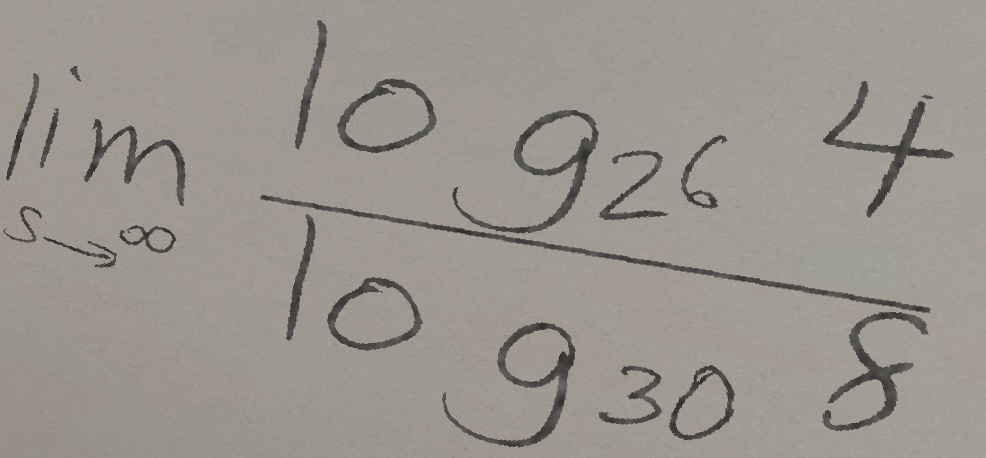 \lim_{s \to \infty} \frac{\log_{26} 4}{\log_{30} 8}